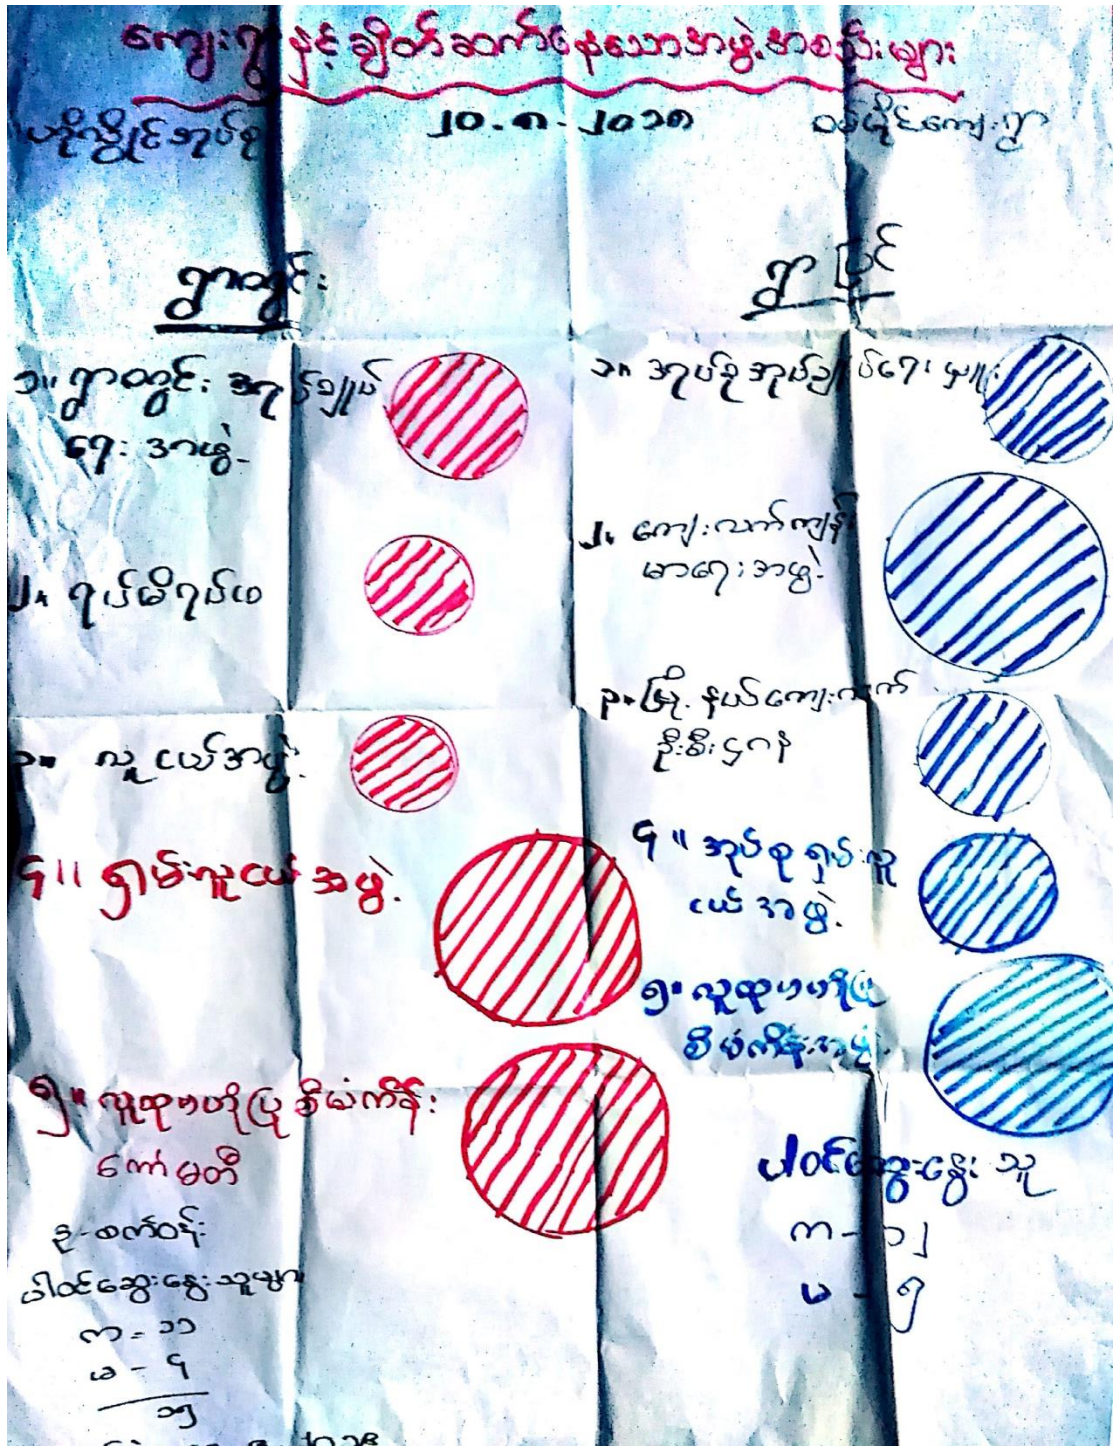 ကျေးရွာနှင့် ချိတ်ဆက်နေသောအဖွဲ့အစည်းများ
ဟိုလှိုင်အုပ်စု ၂၀.၈.၂၀၁၈ ဝမ်ပိုင်ကျေးရွာ
ရွာတွင်း
၁။ ရွာတွင်း အုပ်ချုပ်
ရေး အဖွဲ့
၂။ ရပ်မိရပ်ဖ
၃။ လူငယ်အဖွဲ့
၄။ ရှမ်းလူငယ် အဖွဲ့
၅။ လူထုဗဟိုပြု စီမံကိန်း
ကော်မတီ
ဥ-စက်ဝန်း
ပါဝင်ဆွေးနွေးသူများ
ကျ = ၁၁
မ - ၄
၁၅
ရွာပြင်
၁။ အုပ်စုအုပ်ချုပ်ရေးမှူး
၂။ ကျေးလက်ကျန်း
မာရေးအဖွဲ့
၃။ မြို့နယ်ကျေးလက်
ဦးစီးဌာန
၄။ အုပ်စု ရှမ်းလူ
ငယ်အဖွဲ့
၅။ လူထုဗဟိုပြု
စီမံကိန်းအဖွဲ့
ပါဝင်ဆွေးနွေးသူ
ကျ - ၁၂
မ - ၅